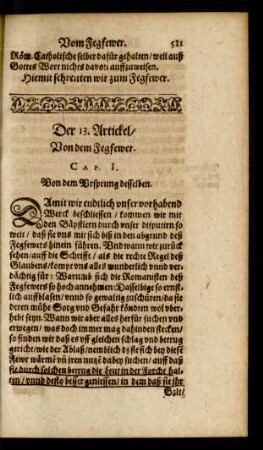 Vom Fegfewer. 511
Röm. Catholische selber dafür gehalten/ weil auß
Gottes Wort nichts davon auffzuweisen.
Hiemit schreitten wir zum Fegfewer.
Der 13. Artickel/
Von dem Fegfewer.
CAP. I.
Von dem Vrsprung desselben.
DAmit wir endlich vnser vorhabend
Werck beschliessen/ kommen wir mit
den Bäpstlern durch vnser disputiren so
weit/ daß sie vns mit sich biß in den abgrund deß
Fegfewers hinein führen. Vnd wann wir zurück
sehen/ auff die Schrifft/ als die rechte Regel deß
Glaubens/ kompt vns alles wunderlich vnnd ver-
dächtig für: Warumb sich die Romanisten deß
Fegfewers so hoch annehmen: Dasselbige so ernst-
lich auffblasen/ vnnd so gewaltig zuschüren/ da sie
deren mühe Sorg vnd Gefahr köndten wol vber-
hebt seyn. Wann wir aber alles herfür suchen vnd
erwegen/ was doch immer mag dahinden stecken/
so finden wir daß es vff gleichen schlag vnd betrug
gericht/ wie der Ablaß/ nemblich daß sie sich bey diese
Fewr wärmē vñ jren nutzē dabey suchen/ auff daß
sie durch solchen betrug die Leut in der Forcht hal-
ten/ vnnd desto besser geniessen/ in dem daß sie jhr
Gelt/